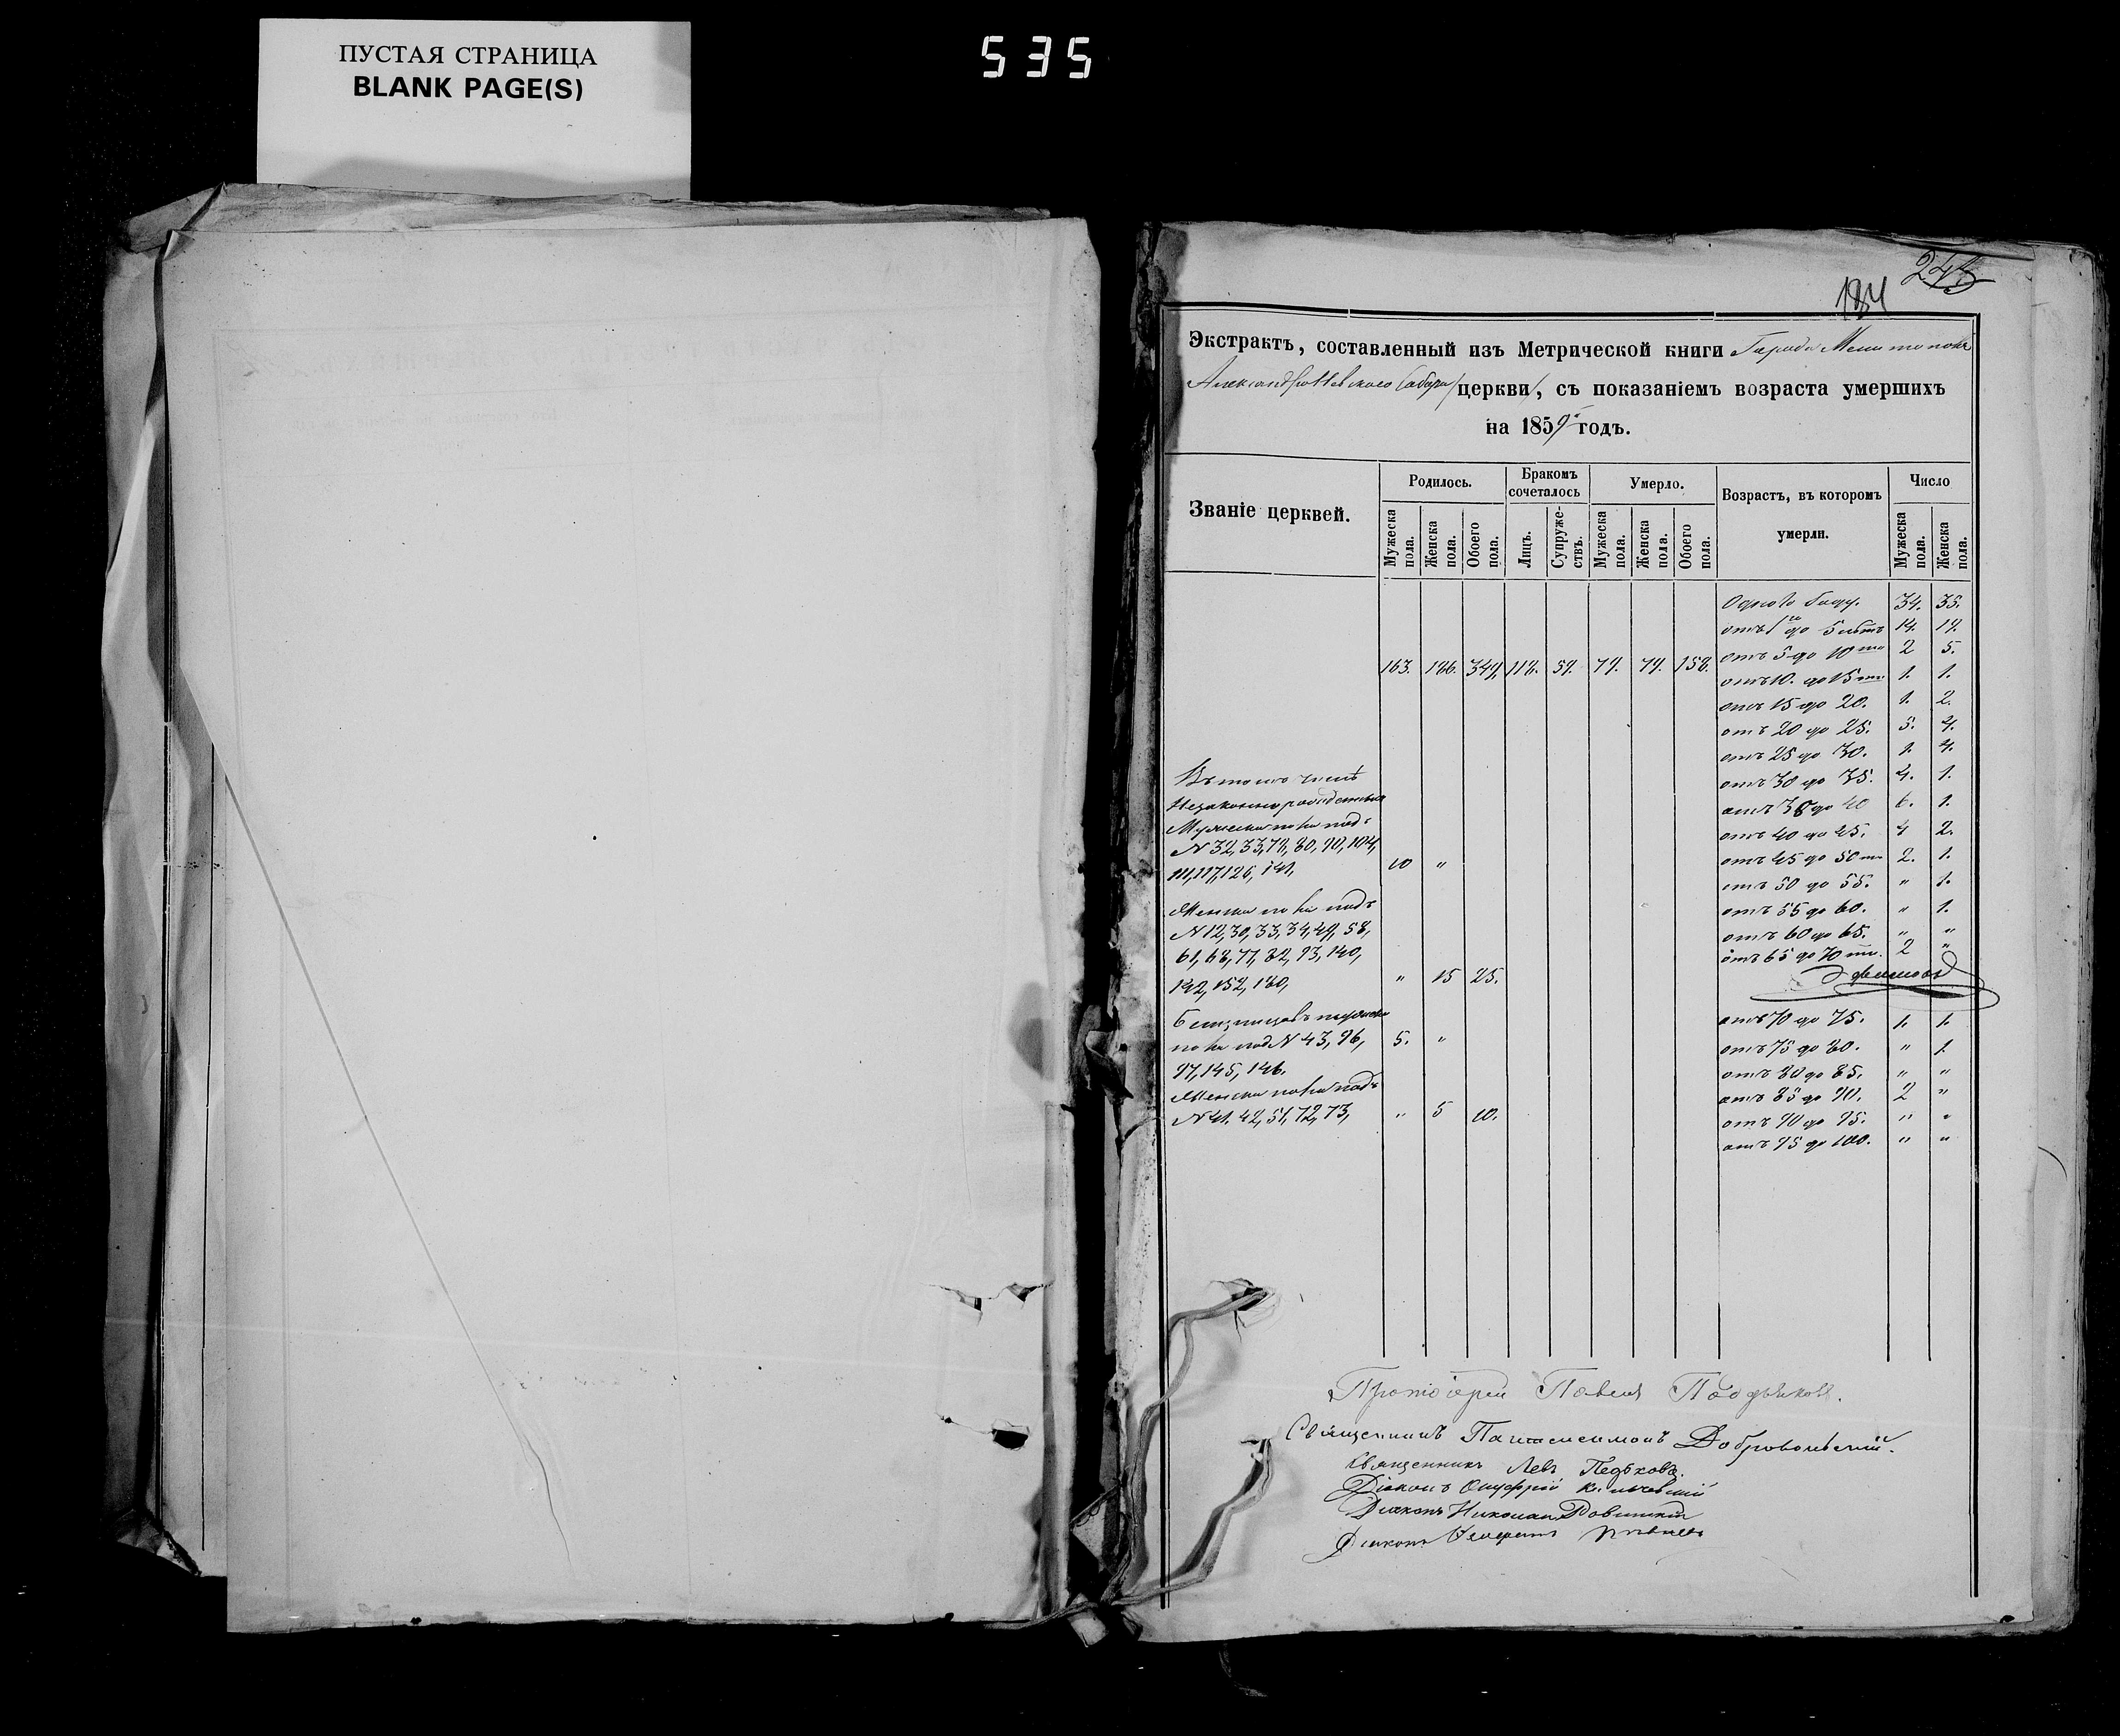 ПУСТАЯ СТРАНИЦА
BLANK PAGE(S)
535
184
Экстрактъ, составленный изъ Метрической книги Города Мелитополя
Александро-Невскаго Собора /церкви/, съ показаніемъ возраста умершихъ
на 1859 годъ.
Званіе церквей.
Родилось.
Бракомъ сочеталось
Умерло.
Возрастъ, въ которомъ умерли.
Число
Мужеска пола.
Женска пола.
Обоего пола.
Лицъ.
Супруже-ствъ.
Мужеска пола.
Женска пола.
Обоего пола.
Мужеска пола.
Женска пола.
163. 186. 349. 118. 59. 79. 79. 158.
Одного года. 34. 35.
отъ 1го до 5 лѣтъ 14. 19.
отъ 5 до 10 ти 2 5.
отъ 10. до 15 ти 1. 1.
отъ 15 до 20. 1. 2.
отъ 20 до 25. 5. 4.
отъ 25 до 30. 1. 4.
отъ 30 до 35. 4. 1.
отъ 35 до 40 6. 1.
отъ 40 до 45. 4 2.
отъ 45 до 50 ти 2. 1.
отъ 50 до 55. " 1.
отъ 55 до 60. " 1.
отъ 60 до 65. " "
отъ 65 до 70 ти. 2 "
отъ 70 до 75. 1. 1.
отъ 75 до 80. " 1.
отъ 80 до 85. " "
отъ 85 до 90. 2 "
отъ 90 до 95. " "
отъ 95 до 100. " "
Въ томъ числѣ
Незаконнорожденныхъ
Мужеска пола подъ
N 32, 33, 78, 80, 90, 104,
111, 117, 126, 141, 10 "
Женска пола подъ
N 12, 30, 33, 34, 49, 58,
61, 68, 77, 82, 93, 140,
142, 152, 180, " 15 25.
Близнецовъ мужеска
пола под N 43, 96, 5. "
97, 145, 146.
Женска пола подъ
N 41. 42, 51, 72, 73, " 5 10.
Протоіерей Павелъ Поддьяковъ.
Священникъ Пантелеимонъ Добровольскій.
Священникъ Левъ
Діаконъ Онуфрій
Діаконъ Николай
Діаконъ